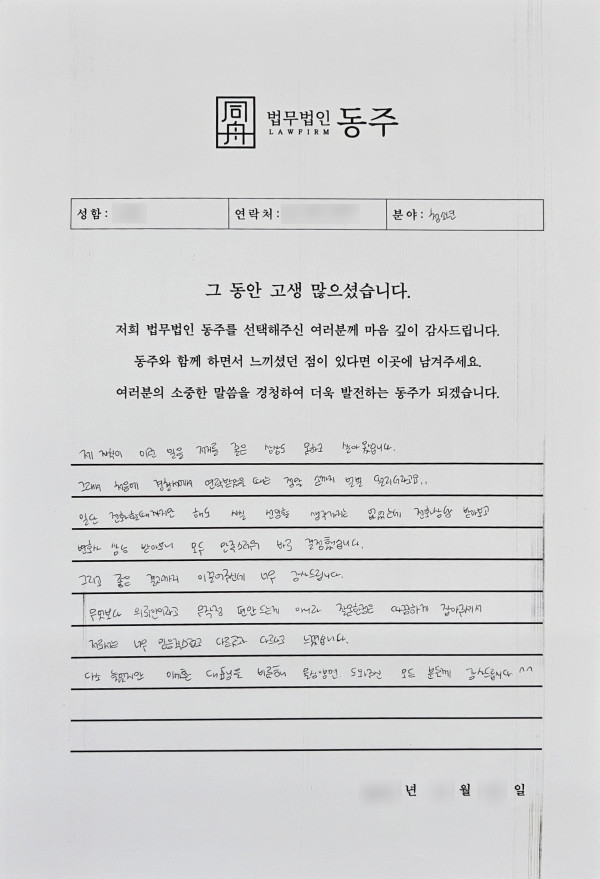 同舟 법무법인 LAWFIRM 동주
성함: 연락처: 분야: 청소년
그 동안 고생 많으셨습니다.
저희 법무법인 동주를 선택해주신 여러분께 마음 깊이 감사드립니다.
동주와 함께 하면서 느끼셨던 점이 있다면 이곳에 남겨주세요.
여러분의 소중한 말씀을 경청하여 더욱 발전하는 동주가 되겠습니다.
제 자식이 이런 일을 저지를 줄은 상상도 못하고 살아왔습니다.
그래서 처음에 경찰서에서 연락받았을 때는 정말 손까지 벌벌 떨리더라고요..
일단 전화할때까지만 해도 사실 선임할 생각까지는 없었는데 전화상담 받아보고
변호사 상담 받아보니 모두 만족스러워 바로 결정했습니다.
그리고 좋은 결과까지 이끌어주셔서 너무 감사드립니다.
무엇보다 의뢰인이라고 무작정 편만 드는게 아니라 잘못한점은 따끔하게 잡아주셔서
저희는 너무 믿음직스럽고 다른곳과 다르다고 느꼈습니다.
다소 늦었지만 이세환 대표님을 비롯해 물심양면 도와주신 모든 분들께 감사드립니다 ^^
년 월 일